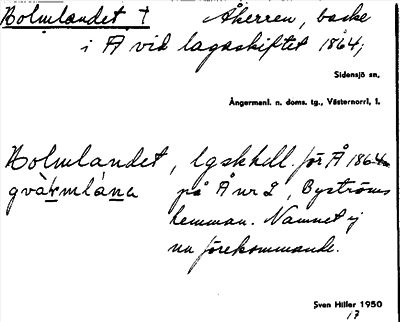 Holmlandet † Åkerren, backe
i Å vid lagaskiftet 1864;
Sidensjö sn.
Ångermanl. n. doms. tg., Västernorrl. l.
Holmlandet, lgskhdl. för Å 1864
på Å nr 2, Byströms
hemman. Namnet ej
nu förekommande.
Sven Hiller 1950
17